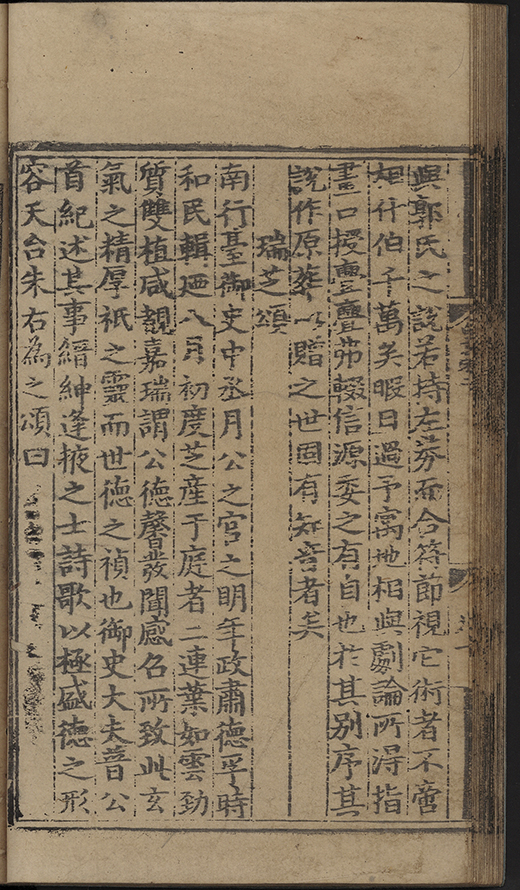 與郭氏之說若持左劵而合符節視它術者不啻
相什伯千萬矣暇日過予寓地相與劇論所得指
畫口授亹亹弗輟信源委之有自也於其別序其
說作原葬以贈之世固有知音者矣
瑞芝頌
南行臺御史中丞月公之官之明年政肅德孚時
和民輯廼八月初度芝産于庭者二連葉如雲勁
質雙植咸覩嘉瑞謂公德馨發聞感召所致此玄
氣之精厚祇之靈而世德之禎也御史大夫普公
首紀述其事縉紳逢掖之士詩歌以極盛德之形
容天台朱右為之頌曰